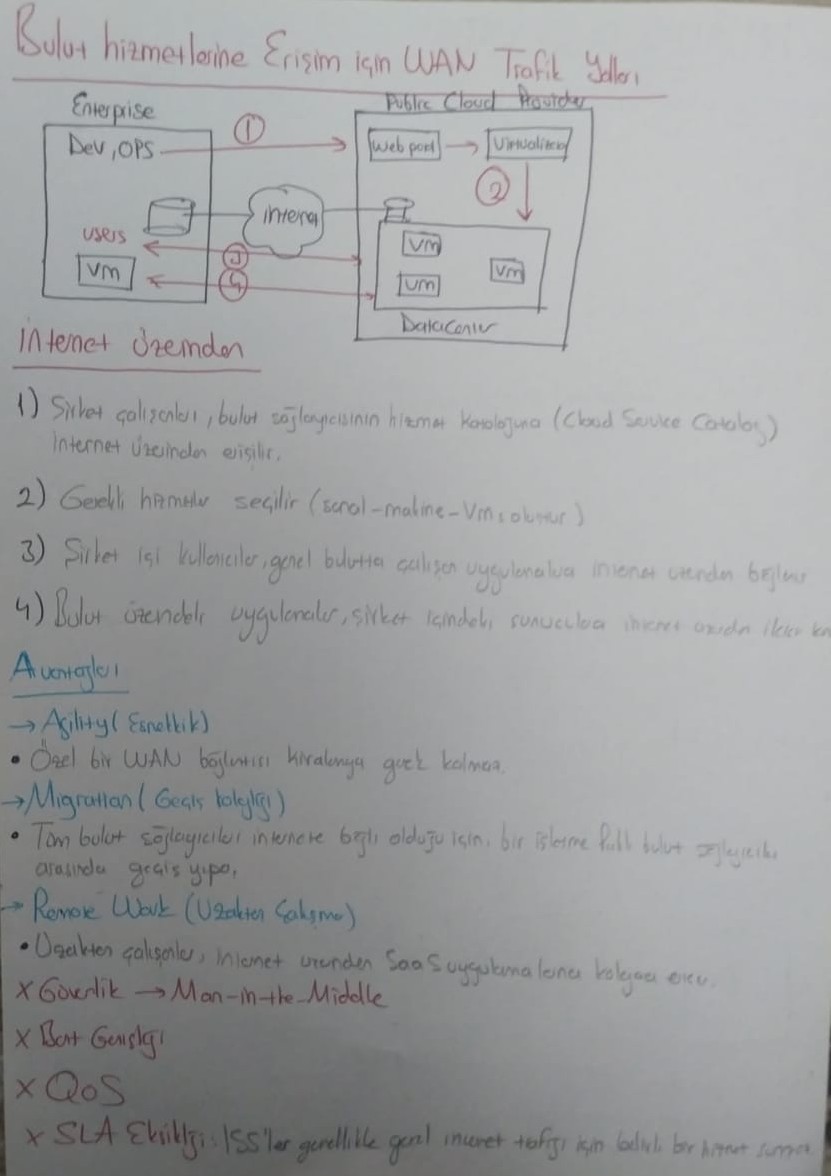 Bulut hizmetlerine Erişim için WAN Trafik Yolları
Enterprise
Public Cloud Provider
Dev, OPS
1
Web port
Virtualization
2
internet
users
3
4
Vm
Vm
Vm
Vm
DataCenter
İnternet üzerinden
1) Şirket çalışanları, bulut sağlayıcısının hizmet kataloğuna (Cloud Service Catalog)
internet üzerinden erişilir.
2) Gerekli hizmetler seçilir (sanal-makine-Vm
3) Şirket içi kullanıcılar, genel bulutta çalışan uygulamalara internet üzerinden bağlanır
4) Bulut üzerindeki uygulamalar, şirket içindeki sunuculara internet üzerinden
Avantajları
→ Agility (Esneklik)
• Özel bir WAN bağlantısı kiralamaya gerek kalmaz.
→ Migration (Geçiş kolaylığı)
• Tüm bulut sağlayıcıları internete bağlı olduğu için, bir işletme farklı bulut sağlayıcıları
arasında geçiş yapar.
→ Remote Work (Uzaktan Çalışma)
• Uzaktan çalışanlar, internet üzerinden SaaS uygulamalarına kolayca
X Güvenlik → Man-in-the-Middle
X Bant Genişliği
X QoS
X SLA Eksikliği: ISS'ler genellikle genel internet trafiği için belirli bir hizmet